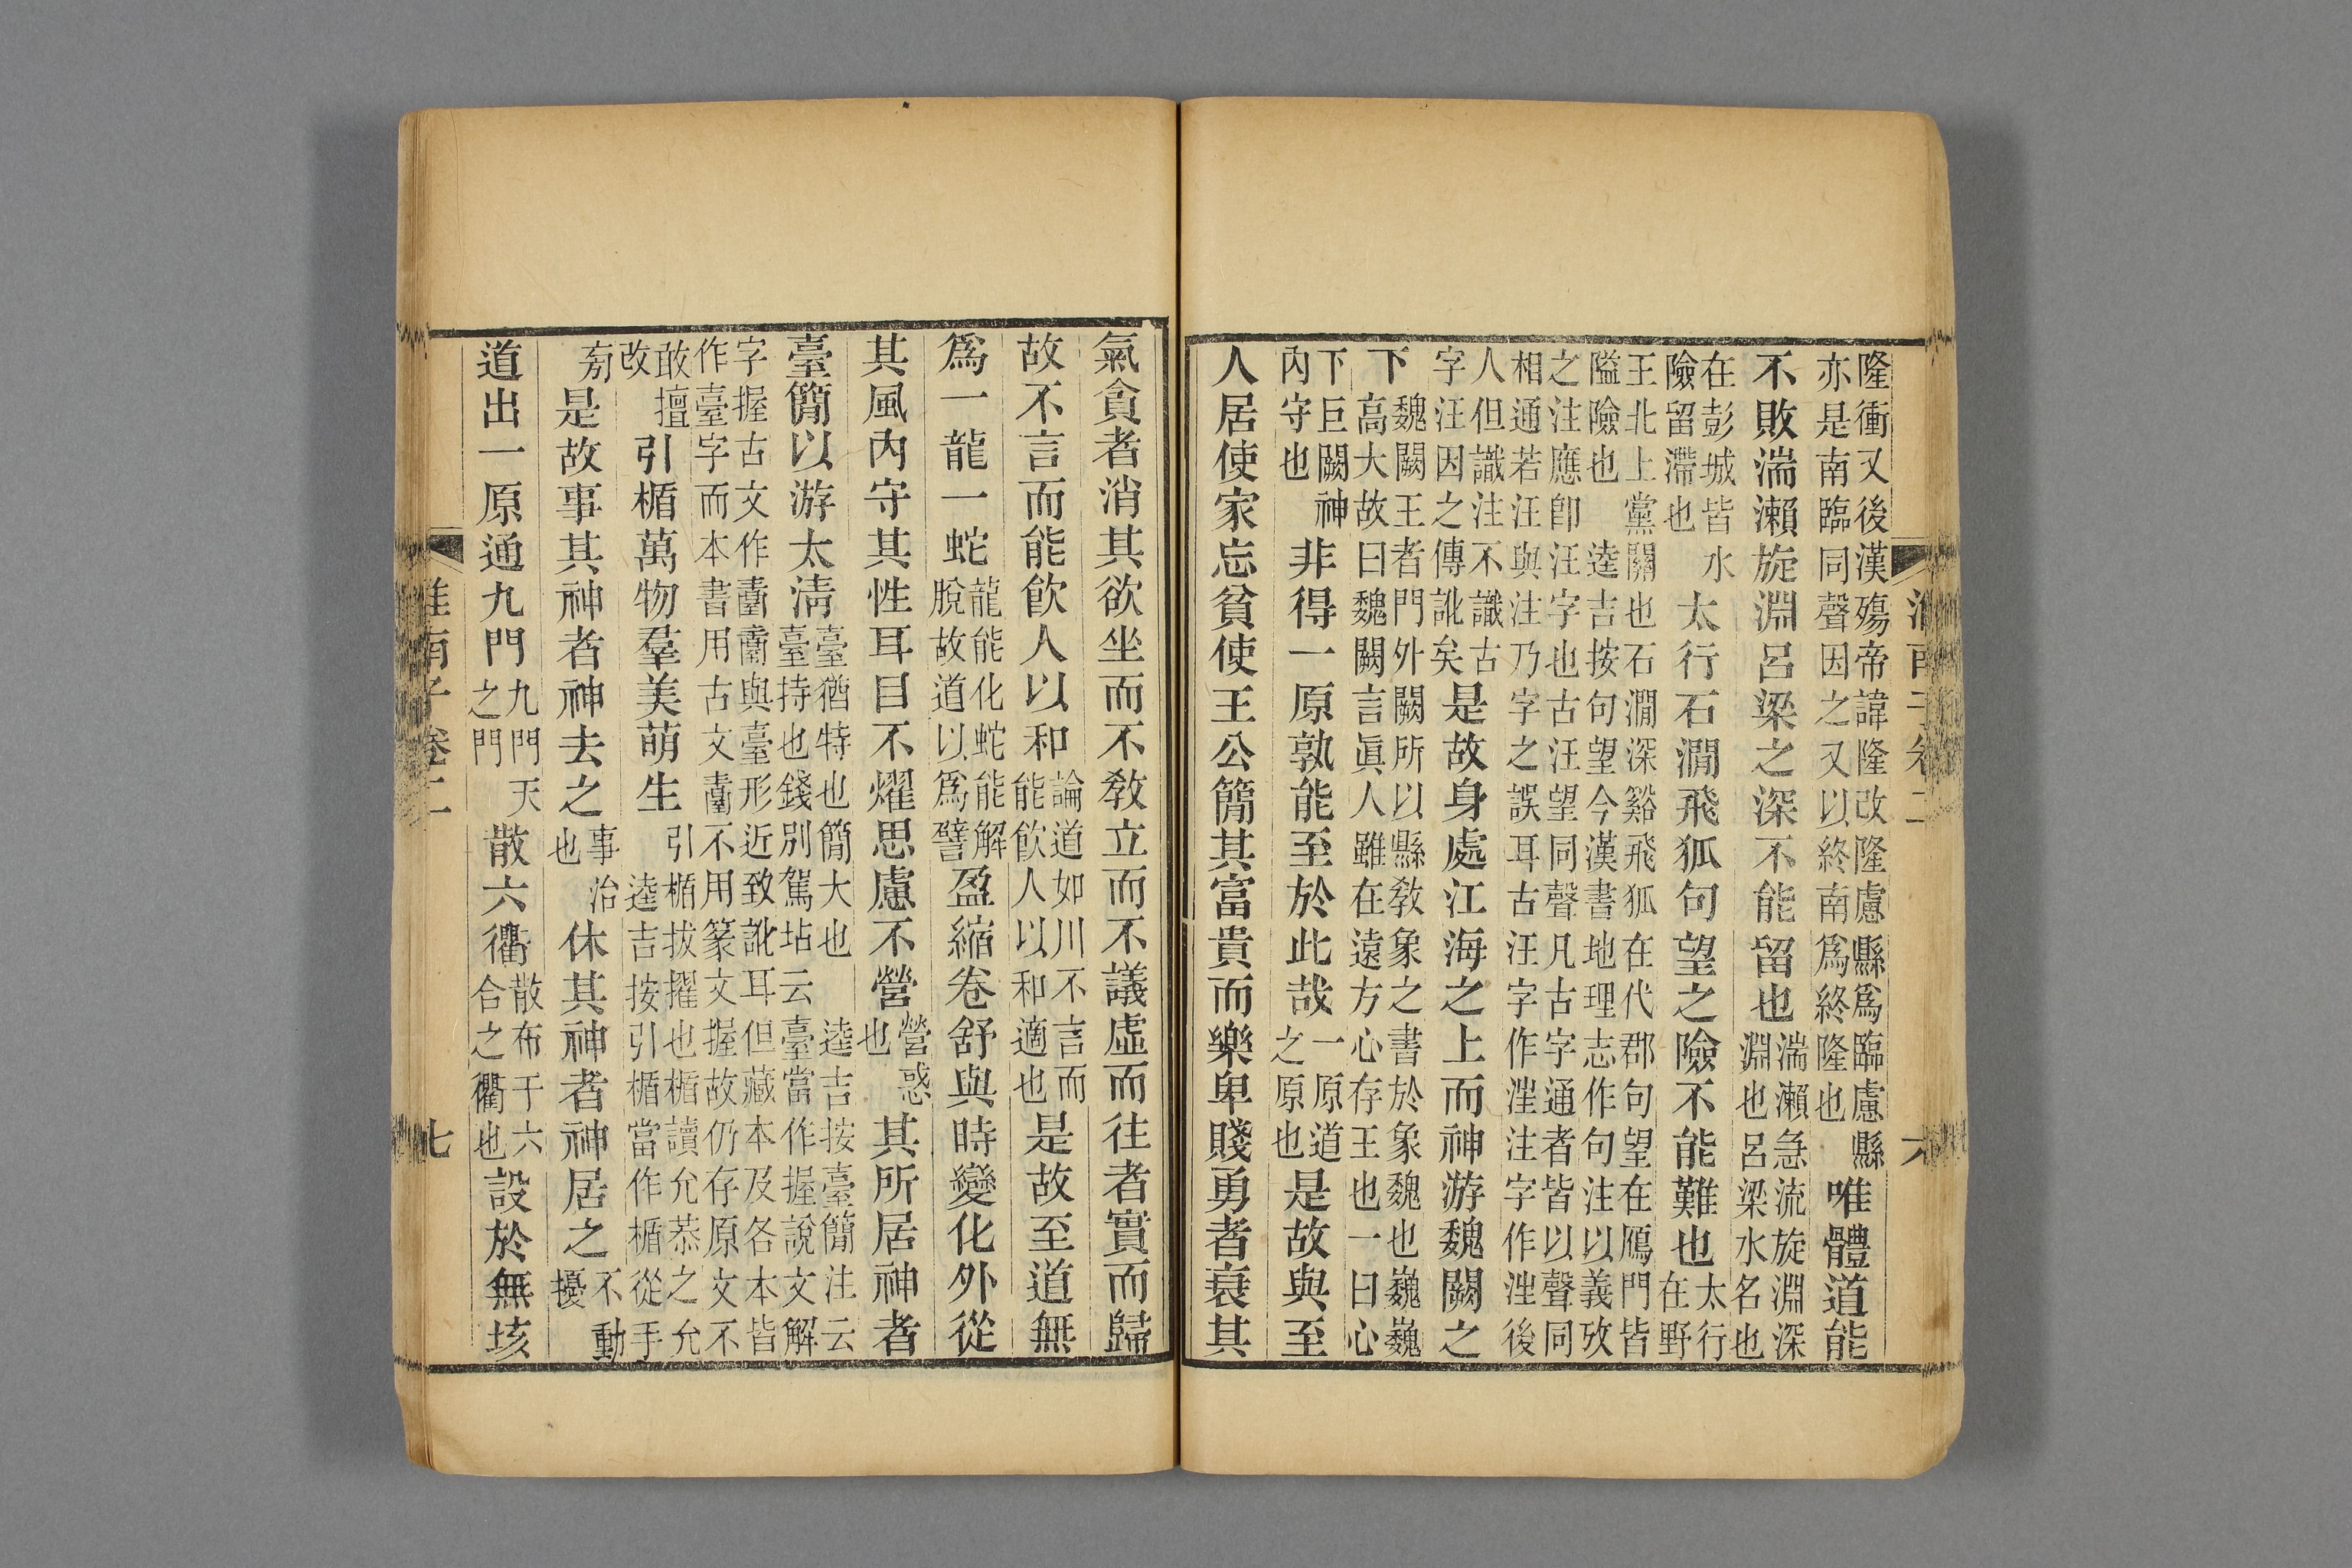 隆衝又後漢殤帝諱隆改隆慮縣爲臨慮縣
亦是南臨同聲因之又以終南爲終隆也
唯體道能
不敗湍瀨旋淵呂梁之深不能留也
湍瀨急流旋淵深
淵也呂梁水名也
在彭城皆水
險留滯也
太行石澗飛狐句望之險不能難也
太行
在野
王北上黨關也石澗深谿飛狐在代郡句望在鴈門皆
隘險也 逵吉按句望今漢書地理志作句注以義攷
之注應卽汪字也古汪望同聲凡古字通者皆以聲同
相通若汪與注乃字之誤耳古汪字作注字作後
人但識注不識古
字汪因之傳訛矣
是故身處江海之上而神游魏闕之
下
魏闕王者門外闕所以縣敎象之書於象魏也巍巍
高大故曰魏闕言眞人雖在遠方心存王也一曰心
下巨闕神
內守也
非得一原孰能至於此哉
一原道
之原也
是故與至
人居使家忘貧使王公簡其富貴而樂卑賤勇者衰其
氣貪者消其欲坐而不敎立而不議虛而往者實而歸
故不言而能飮人以和
論道如川不言而
能飮人以和適也
是故至道無
爲一龍一蛇
龍能化蛇能解
脫故道以爲譬
盈縮卷舒與時變化外從
其風內守其性耳目不燿思慮不營
營惑
也
其所居神者
臺簡以游太淸
臺猶特也簡大也 逵吉按臺簡注云
臺持也錢別駕坫云臺當作握說文解
字握古文作與臺形近致訛耳但藏本及各本皆
作臺字而本書用古文不用篆文握故仍存原文不
敢擅
改
引楯萬物羣美萌生
引楯拔擢也楯讀允恭之允
逵吉按引楯當作楯從手
旁
是故事其神者神去之
事治
也
休其神者神居之
不動
擾
道出一原通九門
九門天
之門
散六衢
散布于六
合之衢也
設於無垓
淮南子卷二
七